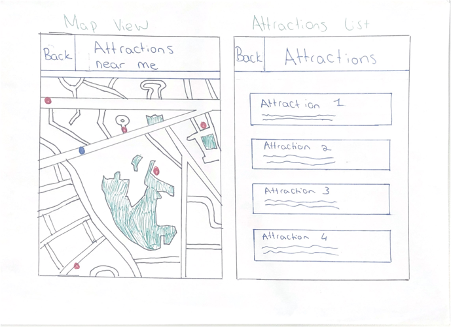 Map View
Attractions List
Back
Attractions
near me
Back
Attractions
Attraction 1
Attraction 2
Attraction 3
Attraction 4